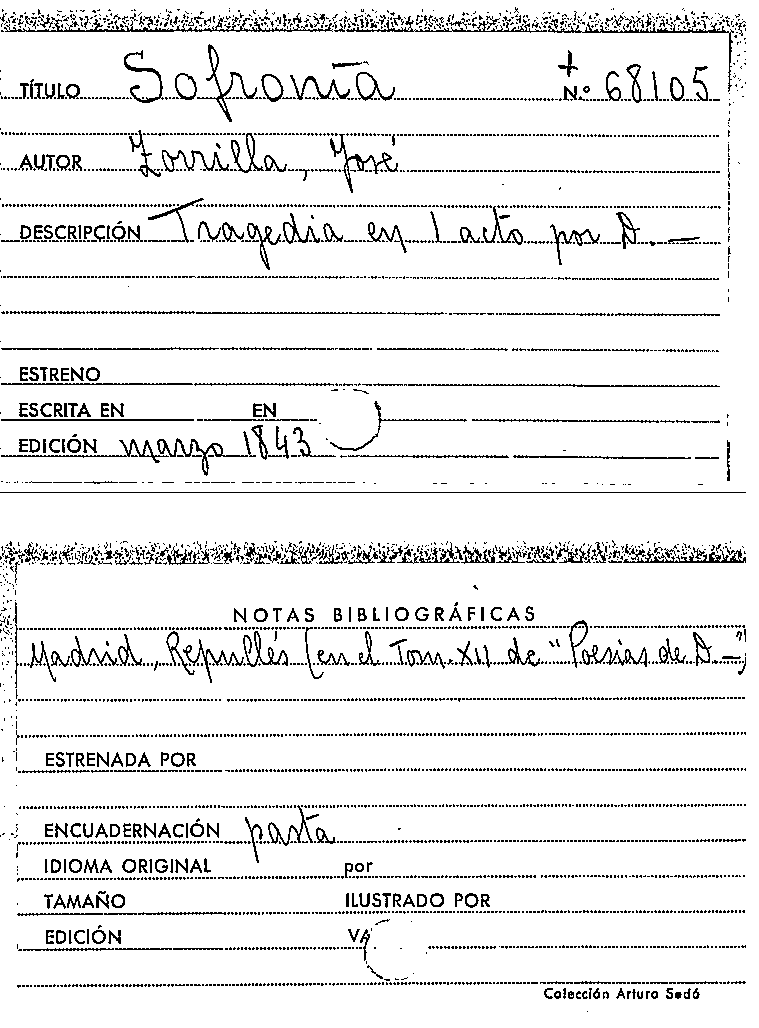 TÍTULO Sofronia + N.º 68105
AUTOR Zorrilla, José
DESCRIPCIÓN Tragedia en 1 acto por D. —
ESTRENO
ESCRITA EN EN
EDICIÓN marzo 1843
NOTAS BIBLIOGRÁFICAS
Madrid, Repullés (en el Tom. XII de "Poesías de D. —")
ESTRENADA POR
ENCUADERNACIÓN pasta
IDIOMA ORIGINAL por
TAMAÑO ILUSTRADO POR
EDICIÓN VA
Colección Arturo Sedó